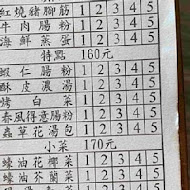 紅燒豬腳筋 1 2 3 4 5
牛肉腸粉 1 2 3 4 5
海鮮蒸蛋 1 2 3 4 5
特點 160元
蝦仁腸粉 1 2 3 4 5
酥皮濃湯 1 2 3 4 5
烤白菜 1 2 3 4 5
春風得意腸粉 1 2 3 4 5
蟲草花湯包 1 2 3 4 5
小菜 170元
蠔油花椰菜 1 2 3 4 5
蠔油芥蘭菜 1 2 3 4 5